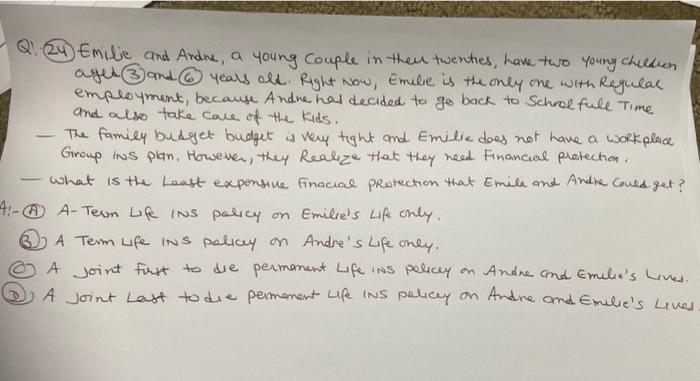 Q:- 24 Emilie and Andre, a young couple in their twenties, have two young children
aged 3 and 6 years old. Right now, Emilie is the only one with Regular
employment, because Andre had decided to go back to School full Time
and also take care of the kids.
— The family budget budget is very tight and Emilie does not have a workplace
Group INS plan. However, they Realize that they need Financial protection.
— what is the Least expensive Finacial PRotection that Emilie and Andre Could get?
A:- A A- Term Life INS policy on Emilie's Life only.
B) A Term Life INS policy on Andre's Life only.
C) A Joint first to die permanent Life INS policy on Andre and Emilie's Lives.
D) A Joint Last to die permanent Life INS policy on Andre and Emilie's Lives.